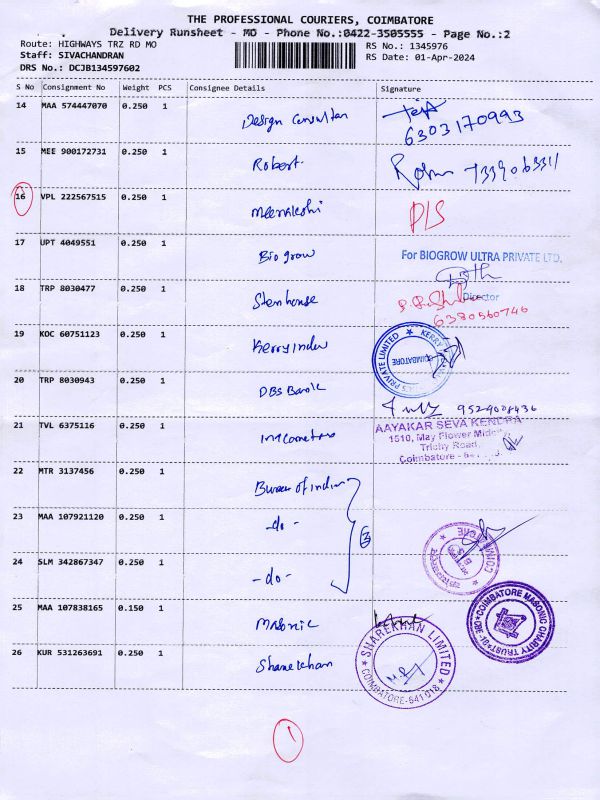 THE PROFESSIONAL COURIERS, COIMBATORE
Delivery Runsheet - MO - Phone No.:0422-3505555 - Page No.:2
Route: HIGHWAYS TRZ RD MO
RS No.: 1345976
Staff: SIVACHANDRAN
RS Date: 01-Apr-2024
DRS No.: DCJB134597602
S No Consignment No Weight PCS Consignee Details Signature
14 MAA 574447070 0.250 1 Design Consultan
6303170993
15 MEE 900172731 0.250 1 Robert
16 VPL 222567515 0.250 1 Meenakshi P/S
17 UPT 4049551 0.250 1 Bio grow For BIOGROW ULTRA PRIVATE LTD.
Director
18 TRP 8030477 0.250 1 Stenhouse
6380560746
19 KOC 60751123 0.250 1 Kerry Indev
KERRY PRIVATE LIMITED COIMBATORE
20 TRP 8030943 0.250 1 DBS Bank
21 TVL 6375116 0.250 1 Incometax AAYAKAR SEVA KENDRA
1510, May Flower
Trichy Road
Coimbatore
22 MTR 3137456 0.250 1 Bureau of Indian
23 MAA 107921120 0.250 1 -do- 3
24 SLM 342867347 0.250 1 -do-
25 MAA 107838165 0.150 1 Masonic COIMBATORE MASONIC CHARITY TRUST
26 KUR 531263691 0.250 1 Sharekhan SHAREKHAN LIMITED
COIMBATORE-641 018
1